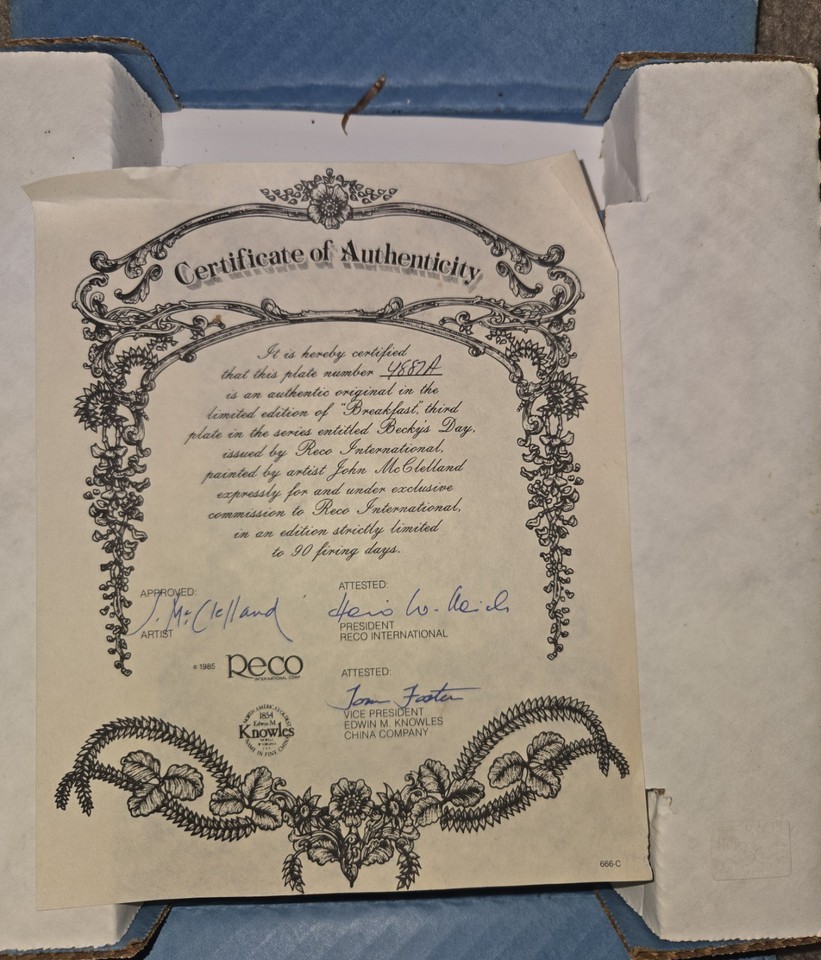 Certificate of Authenticity
It is hereby certified
that this plate number 4887A
is an authentic original in the
limited edition of "Breakfast", third
plate in the series entitled Becky's Day,
issued by Reco International,
painted by artist John McClelland
expressly for and under exclusive
commission to Reco International,
in an edition strictly limited
to 90 firing days.
APPROVED:
J. McClelland
ARTIST
ATTESTED:
PRESIDENT
RECO INTERNATIONAL
© 1985 Reco
INTERNATIONAL CORP.
ATTESTED:
Tom Foster
VICE PRESIDENT
EDWIN M. KNOWLES
CHINA COMPANY
1854
Edwin M.
Knowles
NAME IN FINE CHINA
666-C